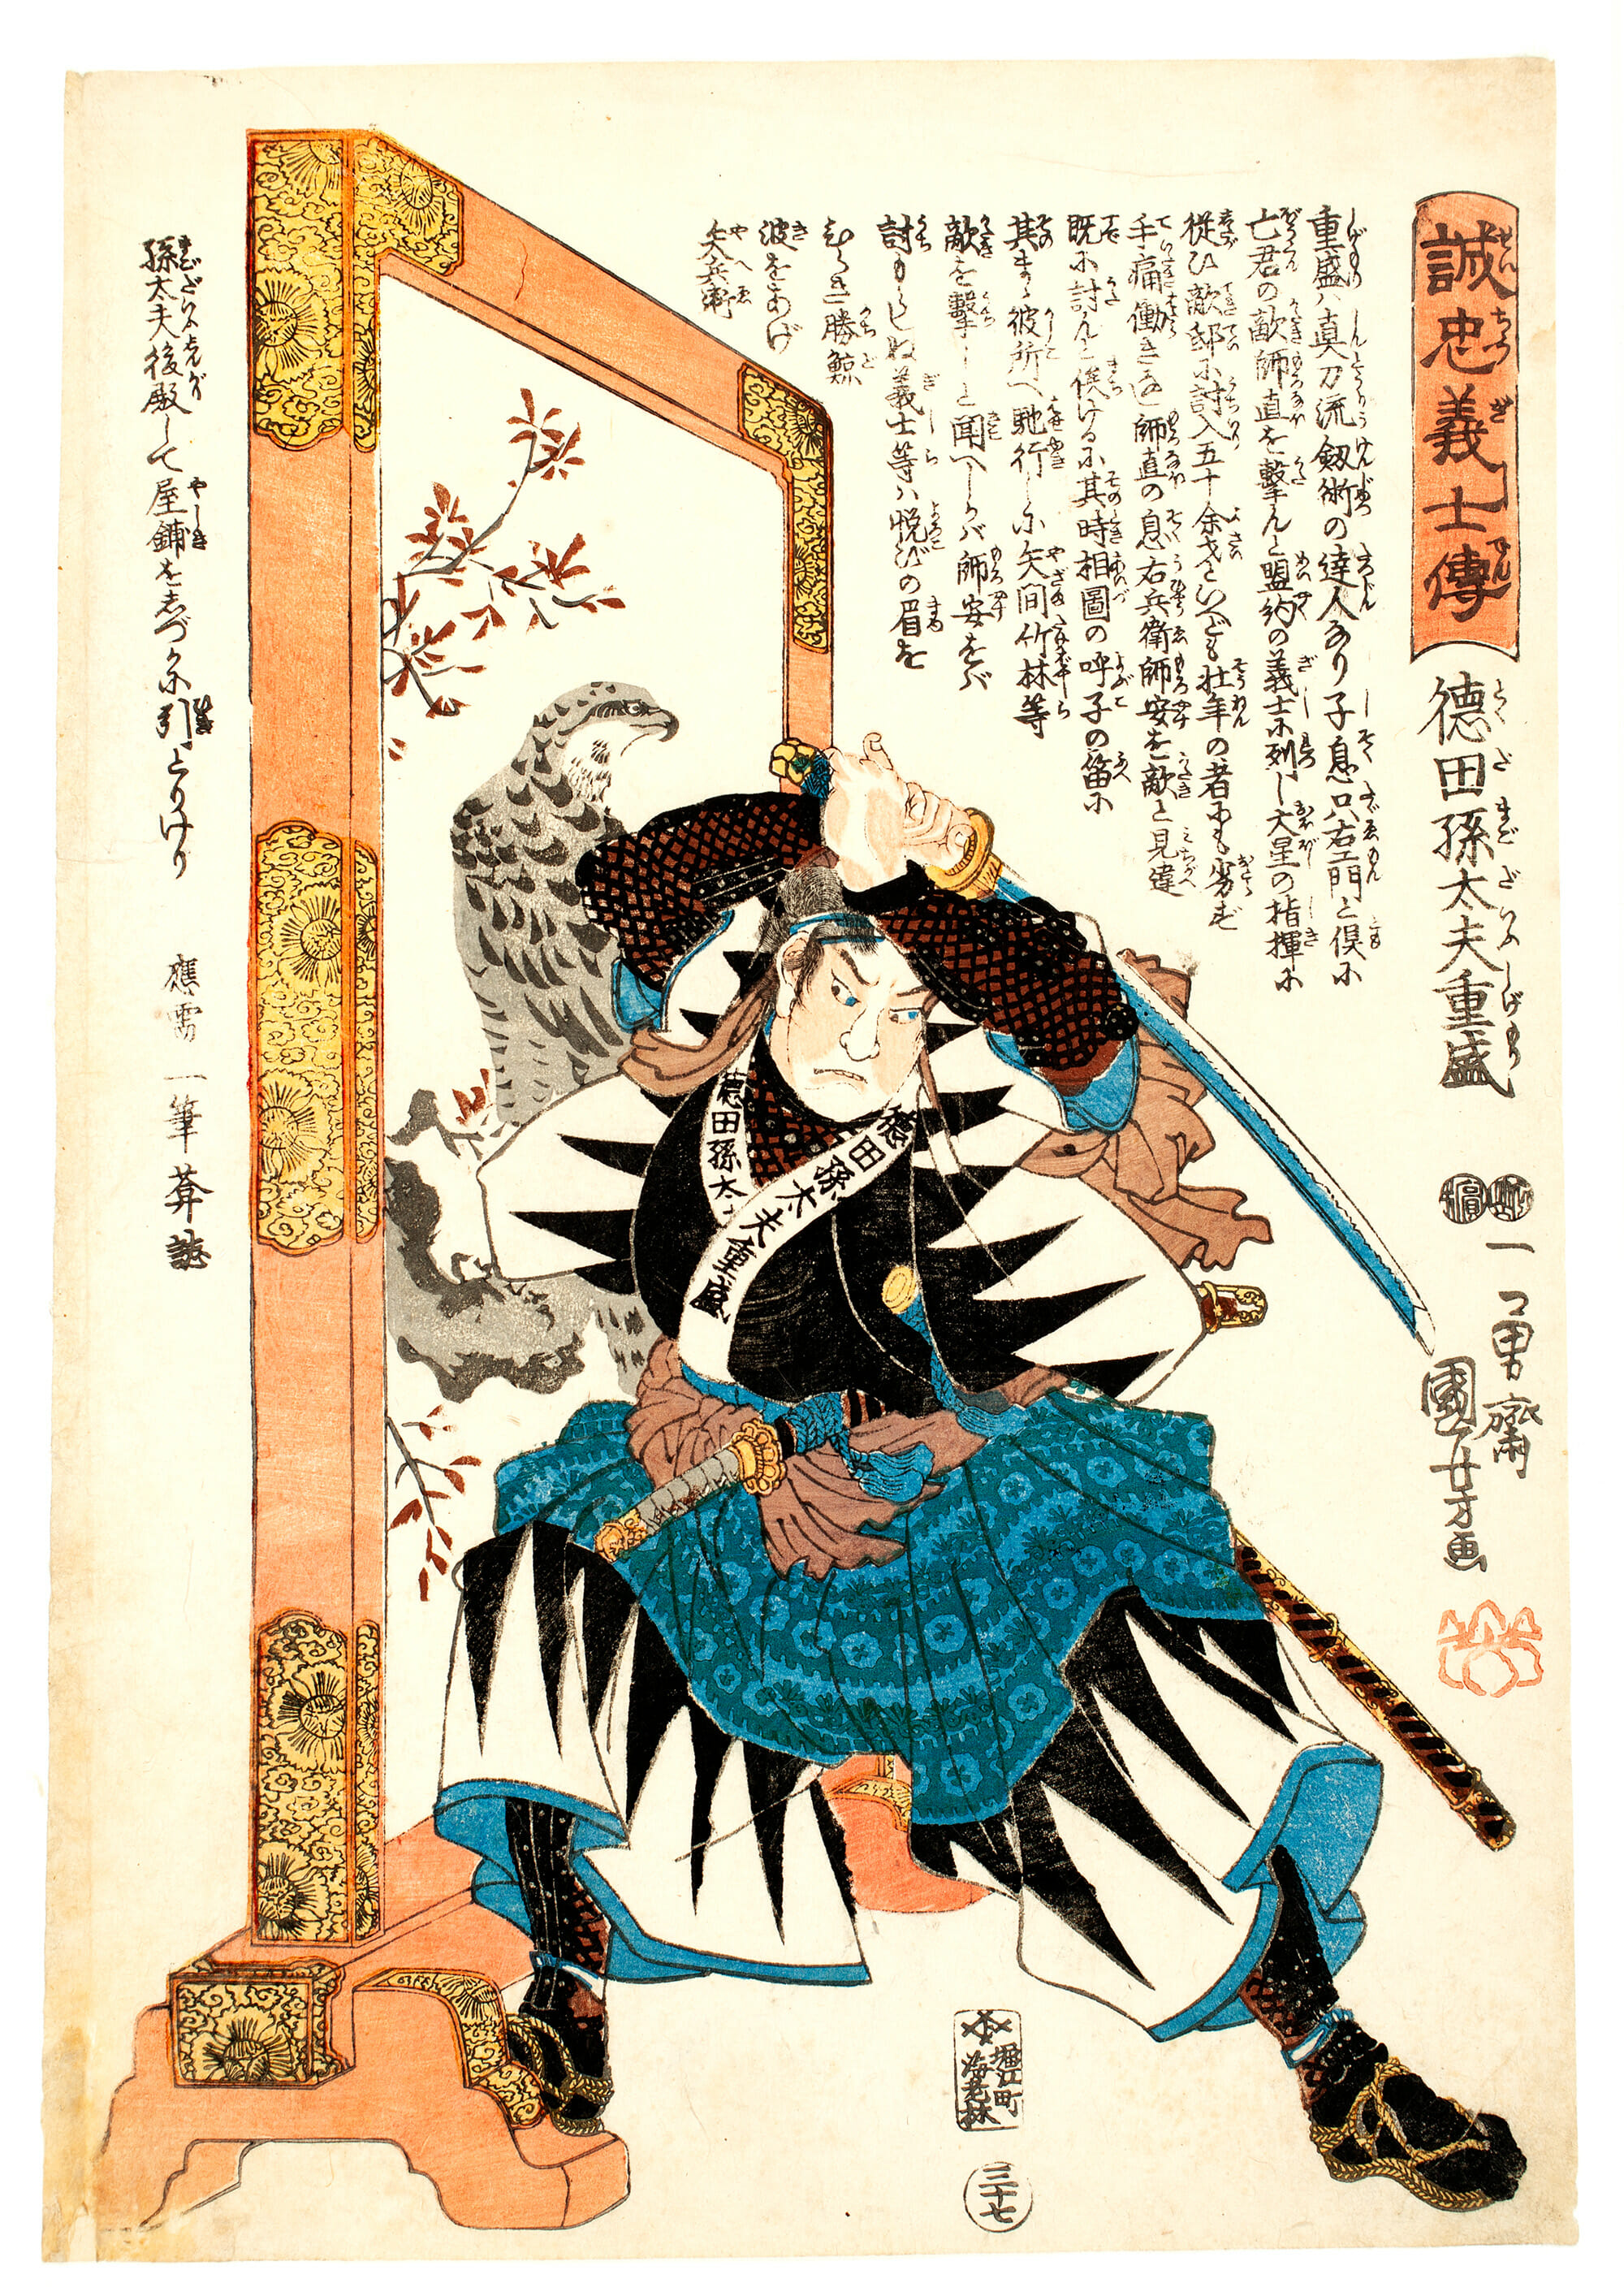 誠忠義士傳
せいちうぎしでん
德田孫太夫重盛
とくだまごだいふしげもり
一勇齋
國芳画
重盛ハ真刀流釼術の達人なり子息只右エ門と倶に
亡君の敵師直を撃んと盟約の義士に列し大星の指揮に
従ひ敵邸に討入五十余才といへども壮年の者にも劣ず
手痛働きなし師直の息右兵衛師安を敵と見違
既に討んと俟けるに其時相圖の呼子の笛に
其まゝ彼所へ馳行しに矢間竹林等
敵を撃しと聞へしかバ師安をバ
討もらしぬ義士等ハ悦びの眉を
ひらき勝鯨
波をあげ
矢兵衛
孫太夫後殿して屋鋪をしづかに引とりけり
應需 一筆葊誌
德田孫太
德田孫太夫重盛
堀江町
海老林
三十七